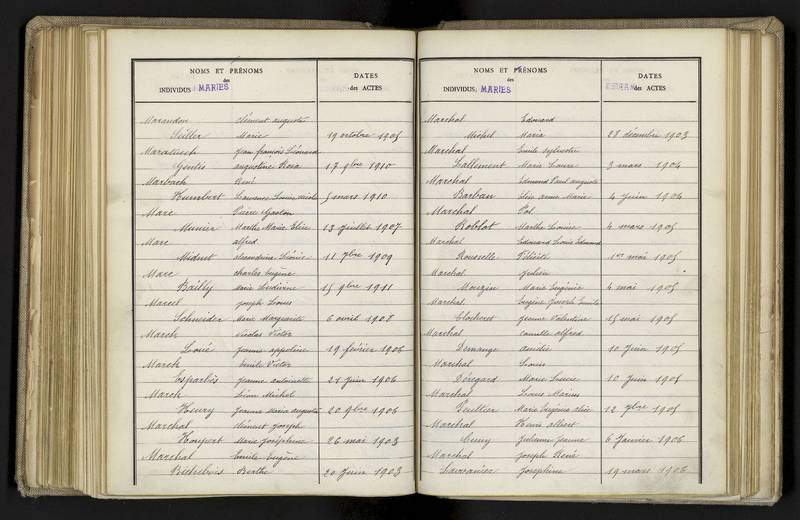 NOMS ET PRÉNOMS
des
INDIVIDUS MARIES
DATES
des ACTES
Marandon Clément auguste
Seiller Marie 19 octobre 1905
Jean françois Léonard
Gentis augustine Rosa 17 9bre 1910
Marbach René
Humbert Louise 5 mars 1910
Marc Pierre Gaston
Munier Marthe Marie Elise 13 juillet 1907
Marc alfred
Midnet 11 7bre 1909
Marc charles Eugène
Bailly Marie Ludivine 15 9bre 1911
Marcel Joseph Louis
Schneider Marie Marguerite 6 avril 1908
March Nicolas Victor
Loué Jeanne appoline 19 février 1906
March Emile Victor
Esparbès Jeanne antoinette 21 juin 1906
March Léon Michel
Henry Jeanne Maria augusta 20 9bre 1906
Marchal Clément Joseph
Houpert Marie Joséphine 26 mai 1903
Marchal Emile Eugène
Berthe 20 Juin 1903
NOMS ET PRÉNOMS
des
INDIVIDUS MARIES
DATES
des ACTES
Marchal Edouard
Michel Maria 28 décembre 1903
Marchal Emile Sylvestre
Lallement Marie Laure 3 mars 1904
Marchal Edmond Paul auguste
Barban anna Marie 4 Juin 1904
Marchal Pol
Roblot Marthe Louise 4 mars 1905
Marchal Edouard Louis Edmond
Rousselle Félicité 1er mai 1905
Marchal Julien
Mougin Marie Eugénie 4 mai 1905
Marchal Eugène Joseph Emile
Clocheret Jeanne Valentine 15 mai 1905
Marchal Camille alfred
Demange amélie 10 Juin 1905
Marchal Louis
Dérégard Marie Louise 10 Juin 1905
Marchal Louis Marius
Peultier Marie Virginie alice 12 7bre 1905
Marchal Henri albert
Cuny Julienne Jeanne 6 Janvier 1906
Marchal Joseph René
Joséphine 19 mars 1906